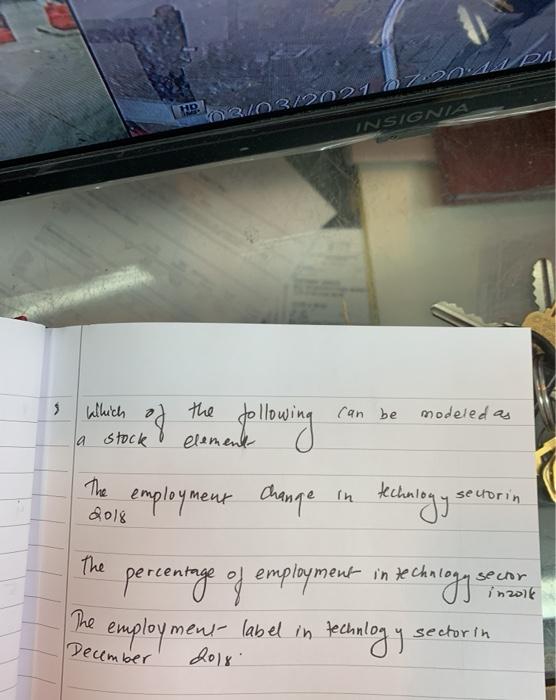 HD
03/03/2021 07:20:44 PM
INSIGNIA
Which of the following can be modeled as
a stock element
The employment change in technlogy sector in
2018
The percentage of employment in technlogy sector
in 2018
The employment label in technlogy sector in
December 2018.